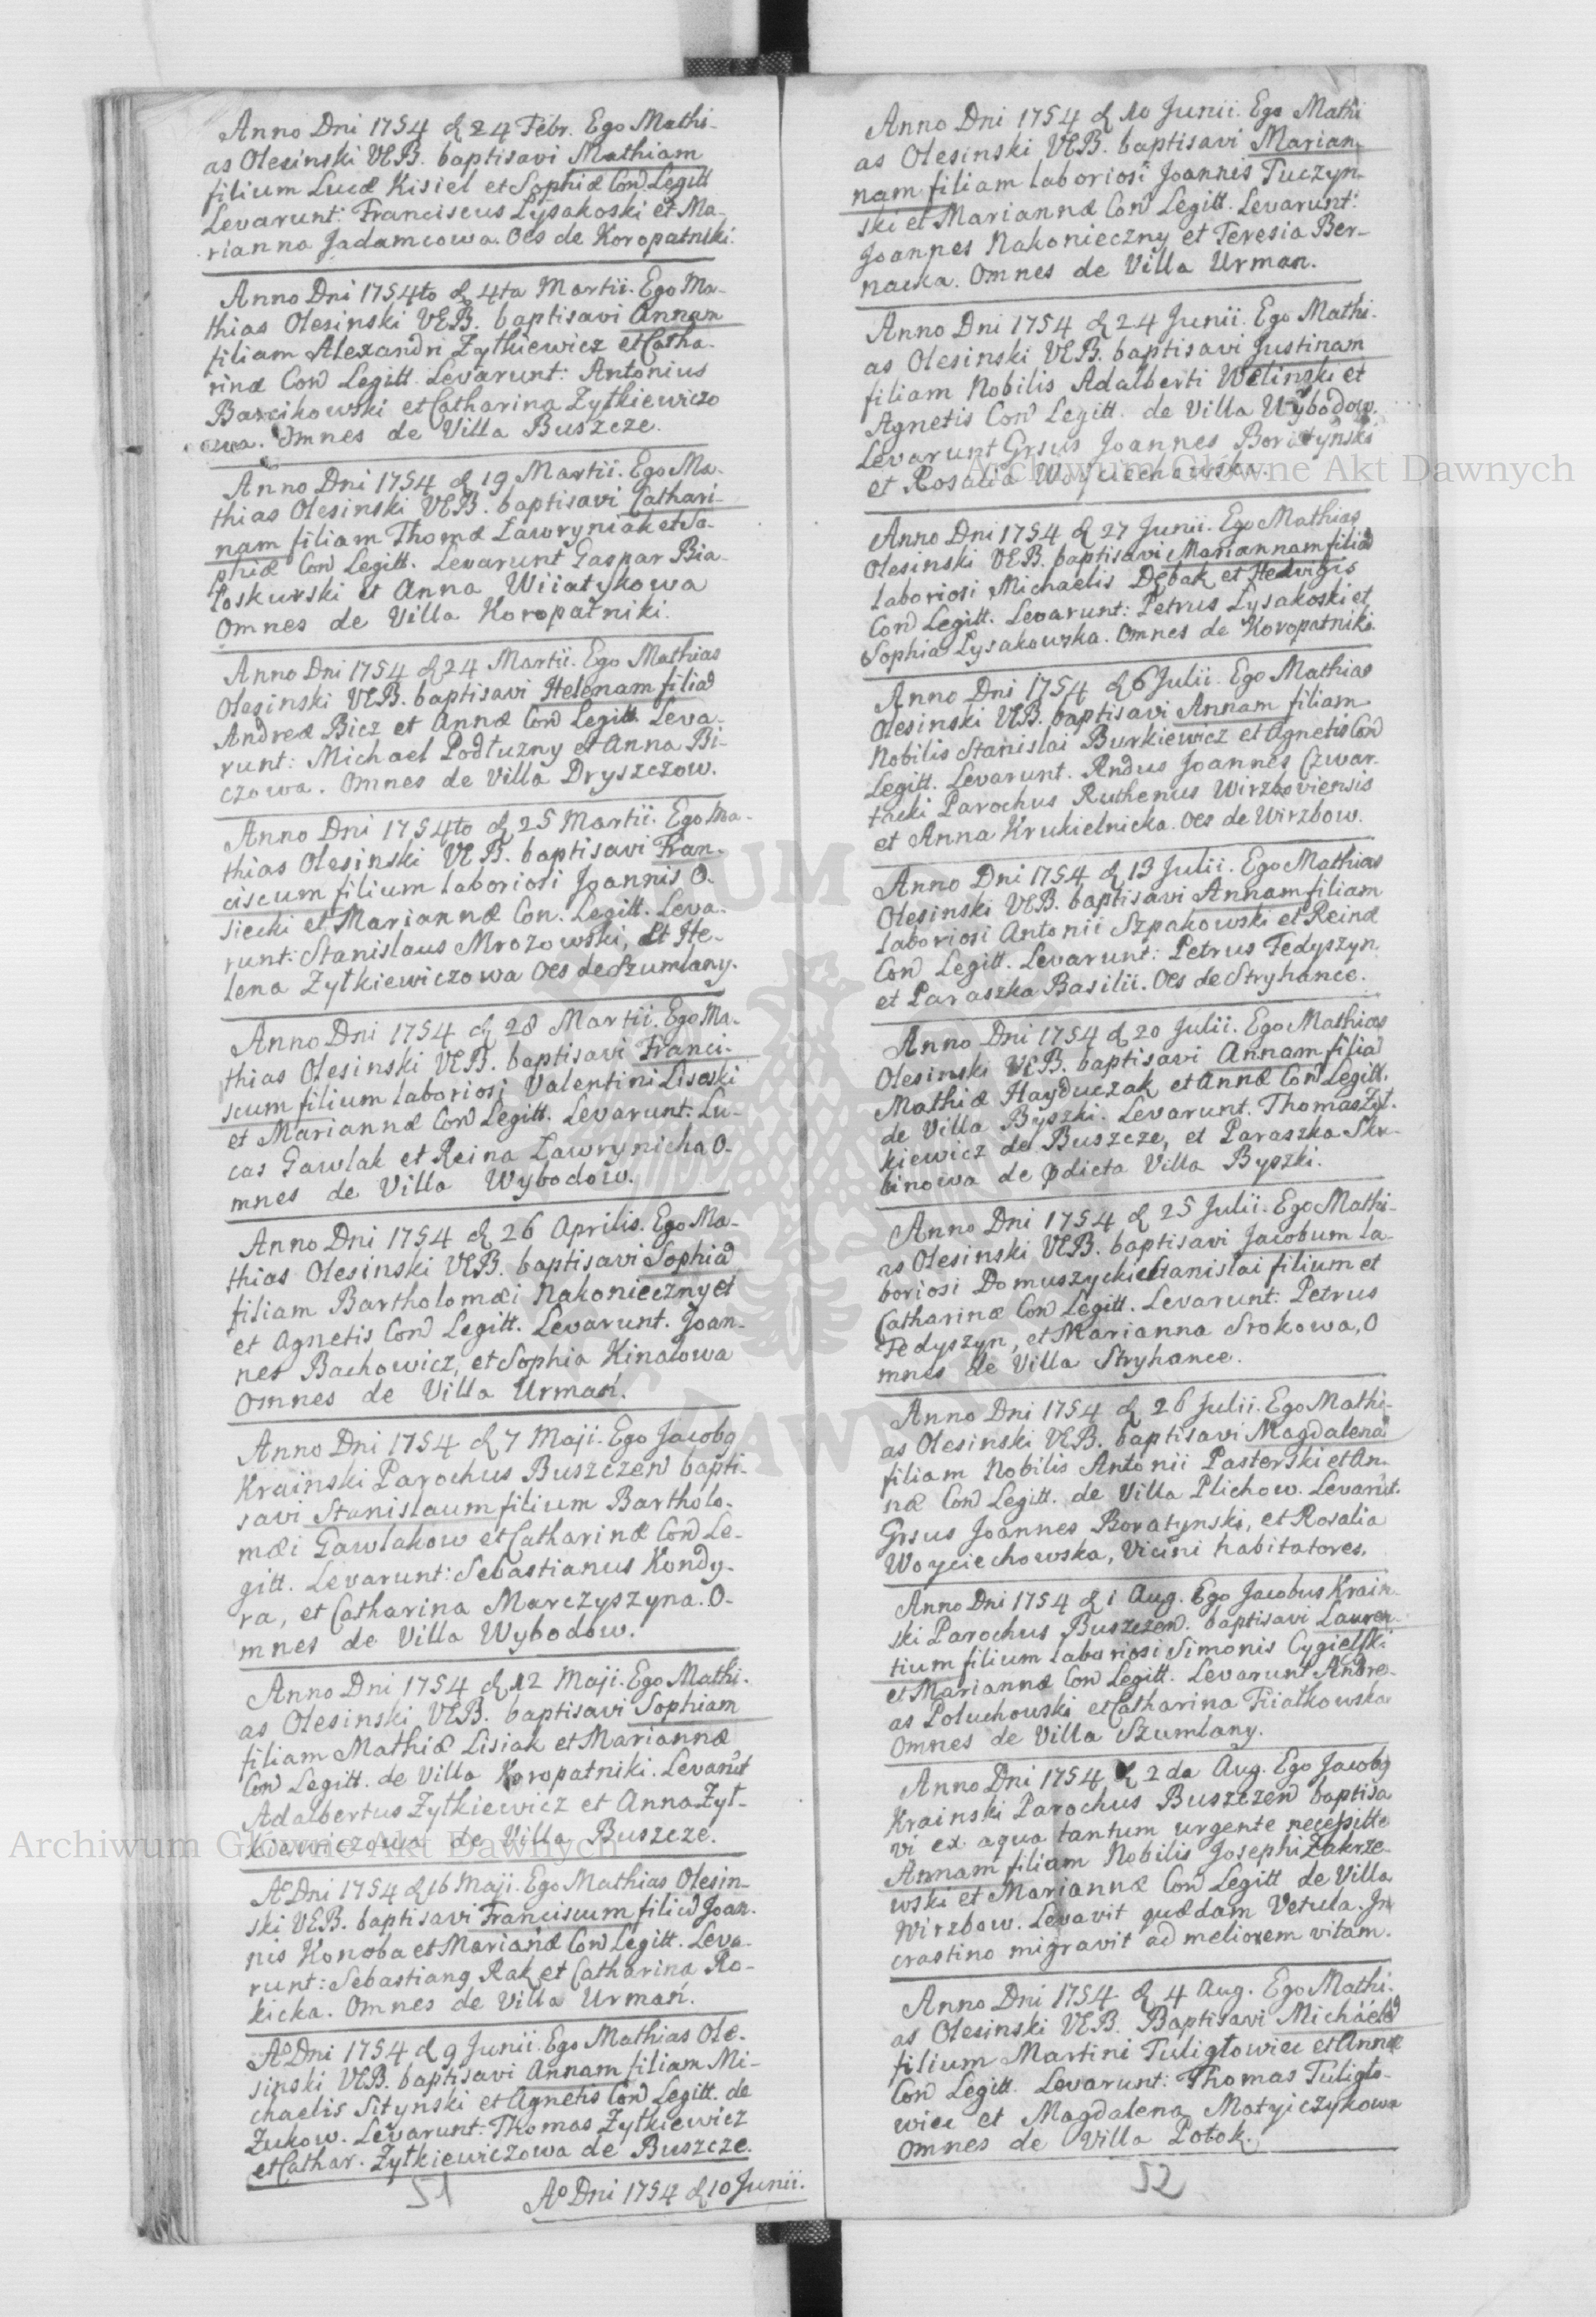 Anno Dni 1754 d 24 Febr. Ego Mathi-
as Olesinski VEB. baptisavi Mathiam
filium Lucæ Kisiel et Sophiæ Con Legitt
Levarunt: Franciscus Lysakoski et Ma-
rianna Jadamcowa. Oes de Koropatniki.
Anno Dni 1754to d 4ta Martii. Ego Ma-
thias Olesinski VEB. baptisavi Annam
filiam Alexandri Zytkiewicz et Catha-
rinæ Con Legitt. Levarunt: Antonius
Barcikowski et Catharina Zytkiewiczo
owa. Omnes de Villa Buszcze.
Anno Dni 1754 d 19 Martii. Ego Ma-
thias Olesinski VEB. baptisavi Cathari-
nam filiam Thomæ Lawryniak et So-
phiæ Con Legitt. Levarunt Gaspar Bia-
loskurski et Anna Wiiatykowa
Omnes de Villa Koropatniki.
Anno Dni 1754 d 24 Martii. Ego Mathias
Olesinski VEB. baptisavi Helenam filiã
Andreæ Bicz et Annæ Con Legitt. Leva-
runt: Michael Podłuzny et Anna Bi-
czowa. Omnes de Villa Dryszczow.
Anno Dni 1754to d 25 Martii. Ego Ma-
thias Olesinski VEB. baptisavi Fran-
ciscum filium laboriosi Joannis O-
siecki et Mariannæ Con. Legitt. Leva-
runt: Stanislaus Mrozowski, et He-
lena Zytkiewiczowa Oes de Szumlany.
Anno Dni 1754 d 28 Martii. Ego Ma-
thias Olesinski VEB. baptisavi Franci-
scum filium laboriosi Valentini Lisoski
et Mariannæ Con Legitt. Levarunt: Lu-
cas Gawlak et Reina Lawrynicha O-
mnes de Villa Wybodow.
Anno Dni 1754 d 26 Aprilis. Ego Ma-
thias Olesinski VEB. baptisavi Sophiã
filiam Bartholomæi Nakonieczny et
et Agnetis Con Legitt. Levarunt. Joan-
nes Bachowicz, et Sophia Kinalowa
Omnes de Villa Urmań.
Anno Dni 1754 d 7 Maji. Ego Jacobq
Krainski Parochus Buszczen bapti-
savi Stanislaum filium Bartholo-
mæi Gawlakow et Catharinæ Con Le-
gitt. Levarunt: Sebastianus Kondy-
ra, et Catharina Marczyszyna. O-
mnes de Villa Wybodow.
Anno Dni 1754 d 12 Maji. Ego Mathi-
as Olesinski VEB. baptisavi Sophiam
filiam Mathiæ Lisiak et Mariannæ
Con Legitt. de Villa Koropatniki. Levarut
Adalbertus Zytkiewicz et Anna Zyt-
kiewiczowa de Villa Buszcze.
Ao Dni 1754 d 16 Maji. Ego Mathias Olesin-
ski VEB. baptisavi Franciscum filiũ Joan-
nis Konoba et Marianæ Con Legitt. Leva-
runt: Sebastianq Rak et Catharina Ro-
kicka. Omnes de Villa Urmań.
Ao Dni 1754 d 9 Junii. Ego Mathias Ole-
sinski VEB. baptisavi Annam filiam Mi-
chaelis Sitynski et Agnetis Con Legitt. de
Zukow. Levarunt: Thomas Zytkiewicz
et Cathar. Zytkiewiczowa de Buszcze.
51
Ao Dni 1754 d 10 Junii.
Anno Dni 1754 d 10 Junii. Ego Mathi
as Olesinski VEB. baptisavi Marian-
nam filiam laboriosi Joannis Tuczyn-
ski et Mariannæ Con Legitt. Levarunt:
Joannes Nakonieczny et Teresia Ber-
nacka. Omnes de Villa Urman.
Anno Dni 1754 d 24 Junii. Ego Mathi-
as Olesinski VEB. baptisavi Justinam
filiam Nobilis Adalberti Welinski et
Agnetis Con Legitt. de Villa Wybodow.
Levarunt Grsus Joannes Boratynski
et Rosalia Woyciechowska.
Anno Dni 1754 d 27 Junii. Ego Mathias
Olesinski VEB. baptisavi Mariannam filiã
laboriosi Michaelis Dębak et Hedvigis
Con Legitt. Levarunt: Petrus Lysakoski et
Sophia Lysakowska. Omnes de Koropatniki.
Anno Dni 1754 d 6 Julii. Ego Mathias
Olesinski VEB. baptisavi Annam filiam
Nobilis Stanislai Burkiewicz et Agnetis Con
Legitt. Levarunt. Rndus Joannes Czwar-
tacki Parochus Ruthenus Wirzboviensis
et Anna Krukielnicka. Oes de Wirzbow.
Anno Dni 1754 d 13 Julii. Ego Mathias
Olesinski VEB. baptisavi Annam filiam
laboriosi Antonii Szpakowski et Reinæ
Con Legitt. Levarunt: Petrus Fedyszyn
et Paraszka Basilii. Oes de Stryhance.
Anno Dni 1754 d 20 Julii. Ego Mathias
Olesinski VEB. baptisavi Annam filiã
Mathiæ Hayduczak et Annæ Con Legitt.
de Villa Byszki. Levarunt. Thomas Zyt-
kiewicz de Buszcze, et Paraszka Skr-
binowa de pdicta Villa Byszki.
Anno Dni 1754 d 25 Julii. Ego Mathi-
as Olesinski VEB. baptisavi Jacobum la-
boriosi Domuszycki Stanislai filium et
Catharinæ Con Legitt. Levarunt: Petrus
Fedyszyn, et Marianna Srokowa, O
mnes de Villa Stryhance.
Anno Dni 1754 d 26 Julii. Ego Mathi-
as Olesinski VEB. baptisavi Magdalenã
filiam Nobilis Antonii Pasterski et An-
næ Con Legitt. de Villa Plichow. Levarut.
Grsus Joannes Boratynski, et Rosalia
Woyciechowska, Vicini habitatores.
Anno Dni 1754 d 1 Aug. Ego Jacobus Krain-
ski Parochus Buszczen. baptisavi Lauren-
tium filium laboriosi Simonis Cygielski
et Mariannæ Con Legitt. Levarunt Andre-
as Poluchowski et Catharina Fiiatkowska
Omnes de Villa Szumlany.
Anno Dni 1754 d 2da Aug. Ego Jacobq
Krainski Parochus Buszczen baptisa
vi ex aqua tantum urgente necessitte
Annam filiam Nobilis Josephi Zakrze-
wski et Mariannæ Con Legitt de Villa
Wirzbow. Levavit quædam Vetula. In
crastino migravit ad meliorem vitam.
Anno Dni 1754 d 4 Aug. Ego Mathi-
as Olesinski VEB. Baptisavi Michaelẽ
filium Martini Tuligłowicz et Annæ
Con Legitt. Levarunt: Thomas Tuligło-
wicz et Magdalena Matyiczykowa
Omnes de Villa Potok.
52
Archiwum Główne Akt Dawnych
Archiwum Główne Akt Dawnych